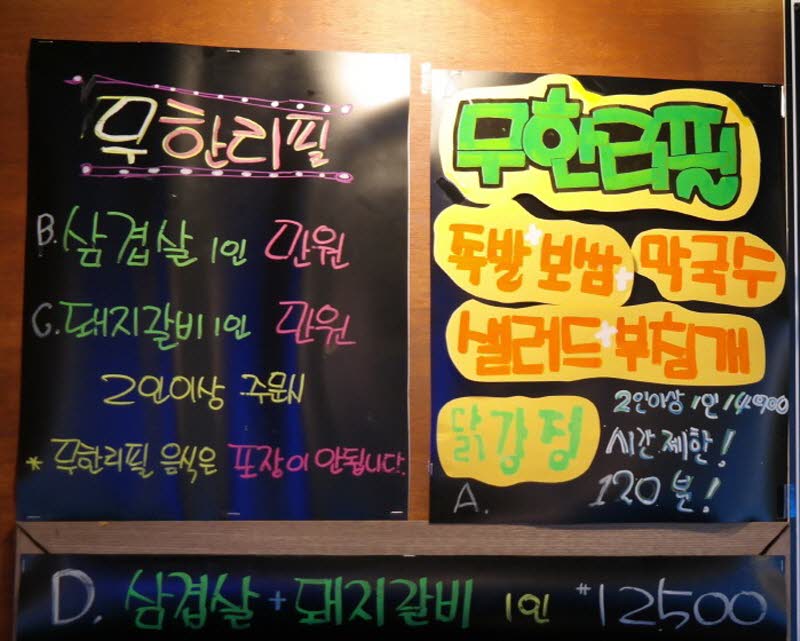 무한리필
B. 삼겹살 1인 만원
C. 돼지갈비 1인 만원
2인이상 주문시
* 무한리필 음식은 포장이 안됩니다.
무한리필
족발+보쌈+막국수
샐러드+부침개
닭강정
2인이상 1인 14,900
시간제한!
120분!
A.
D. 삼겹살+돼지갈비 1인 ₩12500